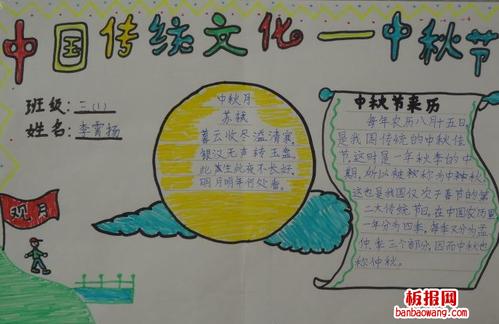 中国传统文化一中秋节
班级:三(1)
姓名:李霄扬
中秋月
苏轼
暮云收尽溢清寒,
银汉无声转玉盘,
此生此夜不长好,
明月明年何处看。
中秋节来历
每年农历八月十五日,
是我国传统的中秋佳
节这时是一年秋季的中
期,所以被称为中秋,
这也是我国仅次于春节的第
二大传统节日。在中国农历里
一年分为四季,每季又分为孟
仲季三个部分,因而中秋也
称仲秋。
观月
板报网
banbaowang.com